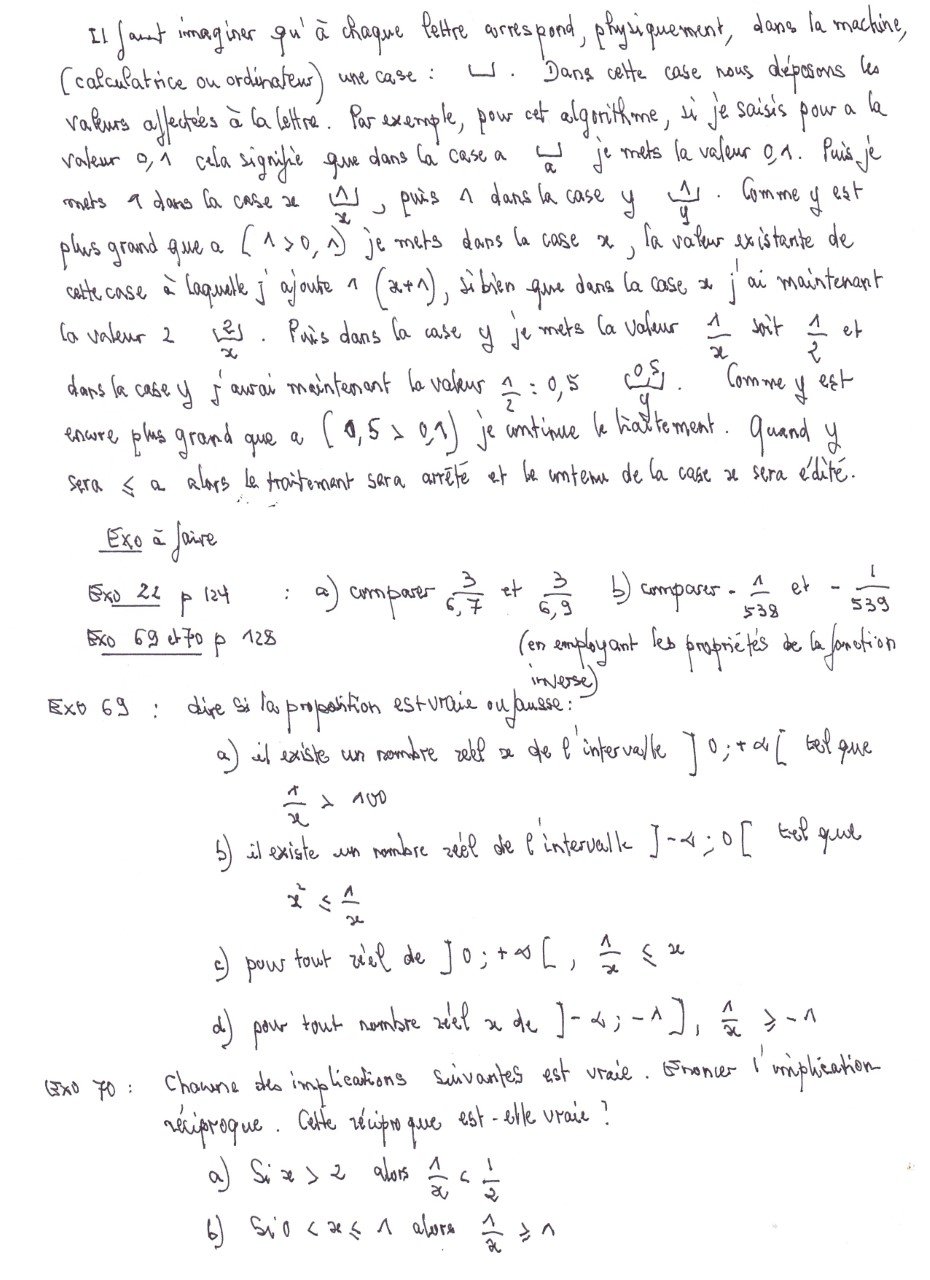 Il faut imaginer qu'à chaque lettre correspond, physiquement, dans la machine,
(calculatrice ou ordinateur) une case : ⊔ . Dans cette case nous déposons les
valeurs affectées à la lettre. Par exemple, pour cet algorithme, si je saisis pour a la
valeur 0,1 cela signifie que dans la case a ⊔ a je mets la valeur 0,1. Puis je
mets 1 dans la case x 1 x , puis 1 dans la case y 1 y . Comme y est
plus grand que a (1 > 0,1) je mets dans la case x, la valeur existante de
cette case à laquelle j'ajoute 1 (x+1), si bien que dans la case x j'ai maintenant
la valeur 2 2 x . Puis dans la case y je mets la valeur 1/x soit 1/2 et
dans la case y j'aurai maintenant la valeur 1/2 = 0,5 0,5 y . Comme y est
encore plus grand que a (0,5 > 0,1) je continue le traitement. Quand y
sera ≤ a alors le traitement sera arrêté et le contenu de la case x sera édité.
Exo à faire
Exo 22 p 124 : a) comparer 3/6,7 et 3/6,9 b) comparer - 1/538 et - 1/539
Exo 69 et 70 p 128 (en employant les propriétés de la fonction
inverse)
Exo 69 : dire si la proposition est vraie ou fausse :
a) il existe un nombre réel x de l'intervalle ]0 ; +∞[ tel que
1/x > 100
b) il existe un nombre réel de l'intervalle ]-∞ ; 0[ tel que
x² ≤ 1/x
c) pour tout réel de ]0 ; +∞[ , 1/x ≤ x
d) pour tout nombre réel x de ]-∞ ; -1], 1/x ≥ -1
Exo 70 : Chacune des implications suivantes est vraie. Enoncer l'implication
réciproque. Cette réciproque est-elle vraie ?
a) Si x > 2 alors 1/x < 1/2
b) Si 0 < x ≤ 1 alors 1/x ≥ 1